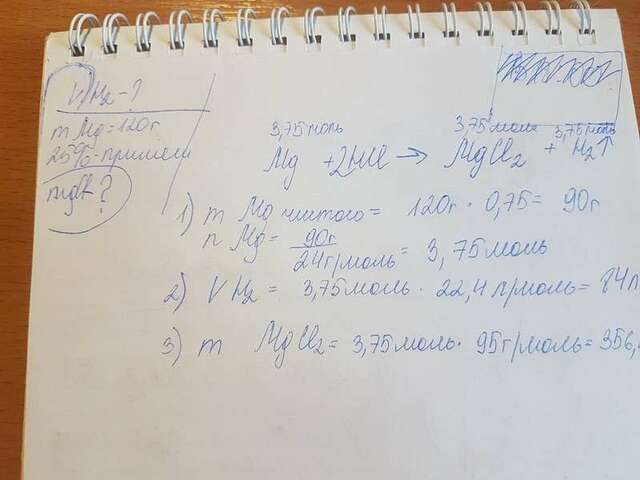 V H₂ - ?
m Mg = 120г
25% - примеси
3,75 моль 3,75 моль 3,75 моль
Mg + 2HCl → MgCl₂ + H₂↑
1) m Mg чистого = 120г · 0,75 = 90г
n Mg = 90г / 24г/моль = 3,75 моль
2) V H₂ = 3,75 моль · 22,4 л/моль = 84л
3) m MgCl₂ = 3,75 моль · 95г/моль = 356,